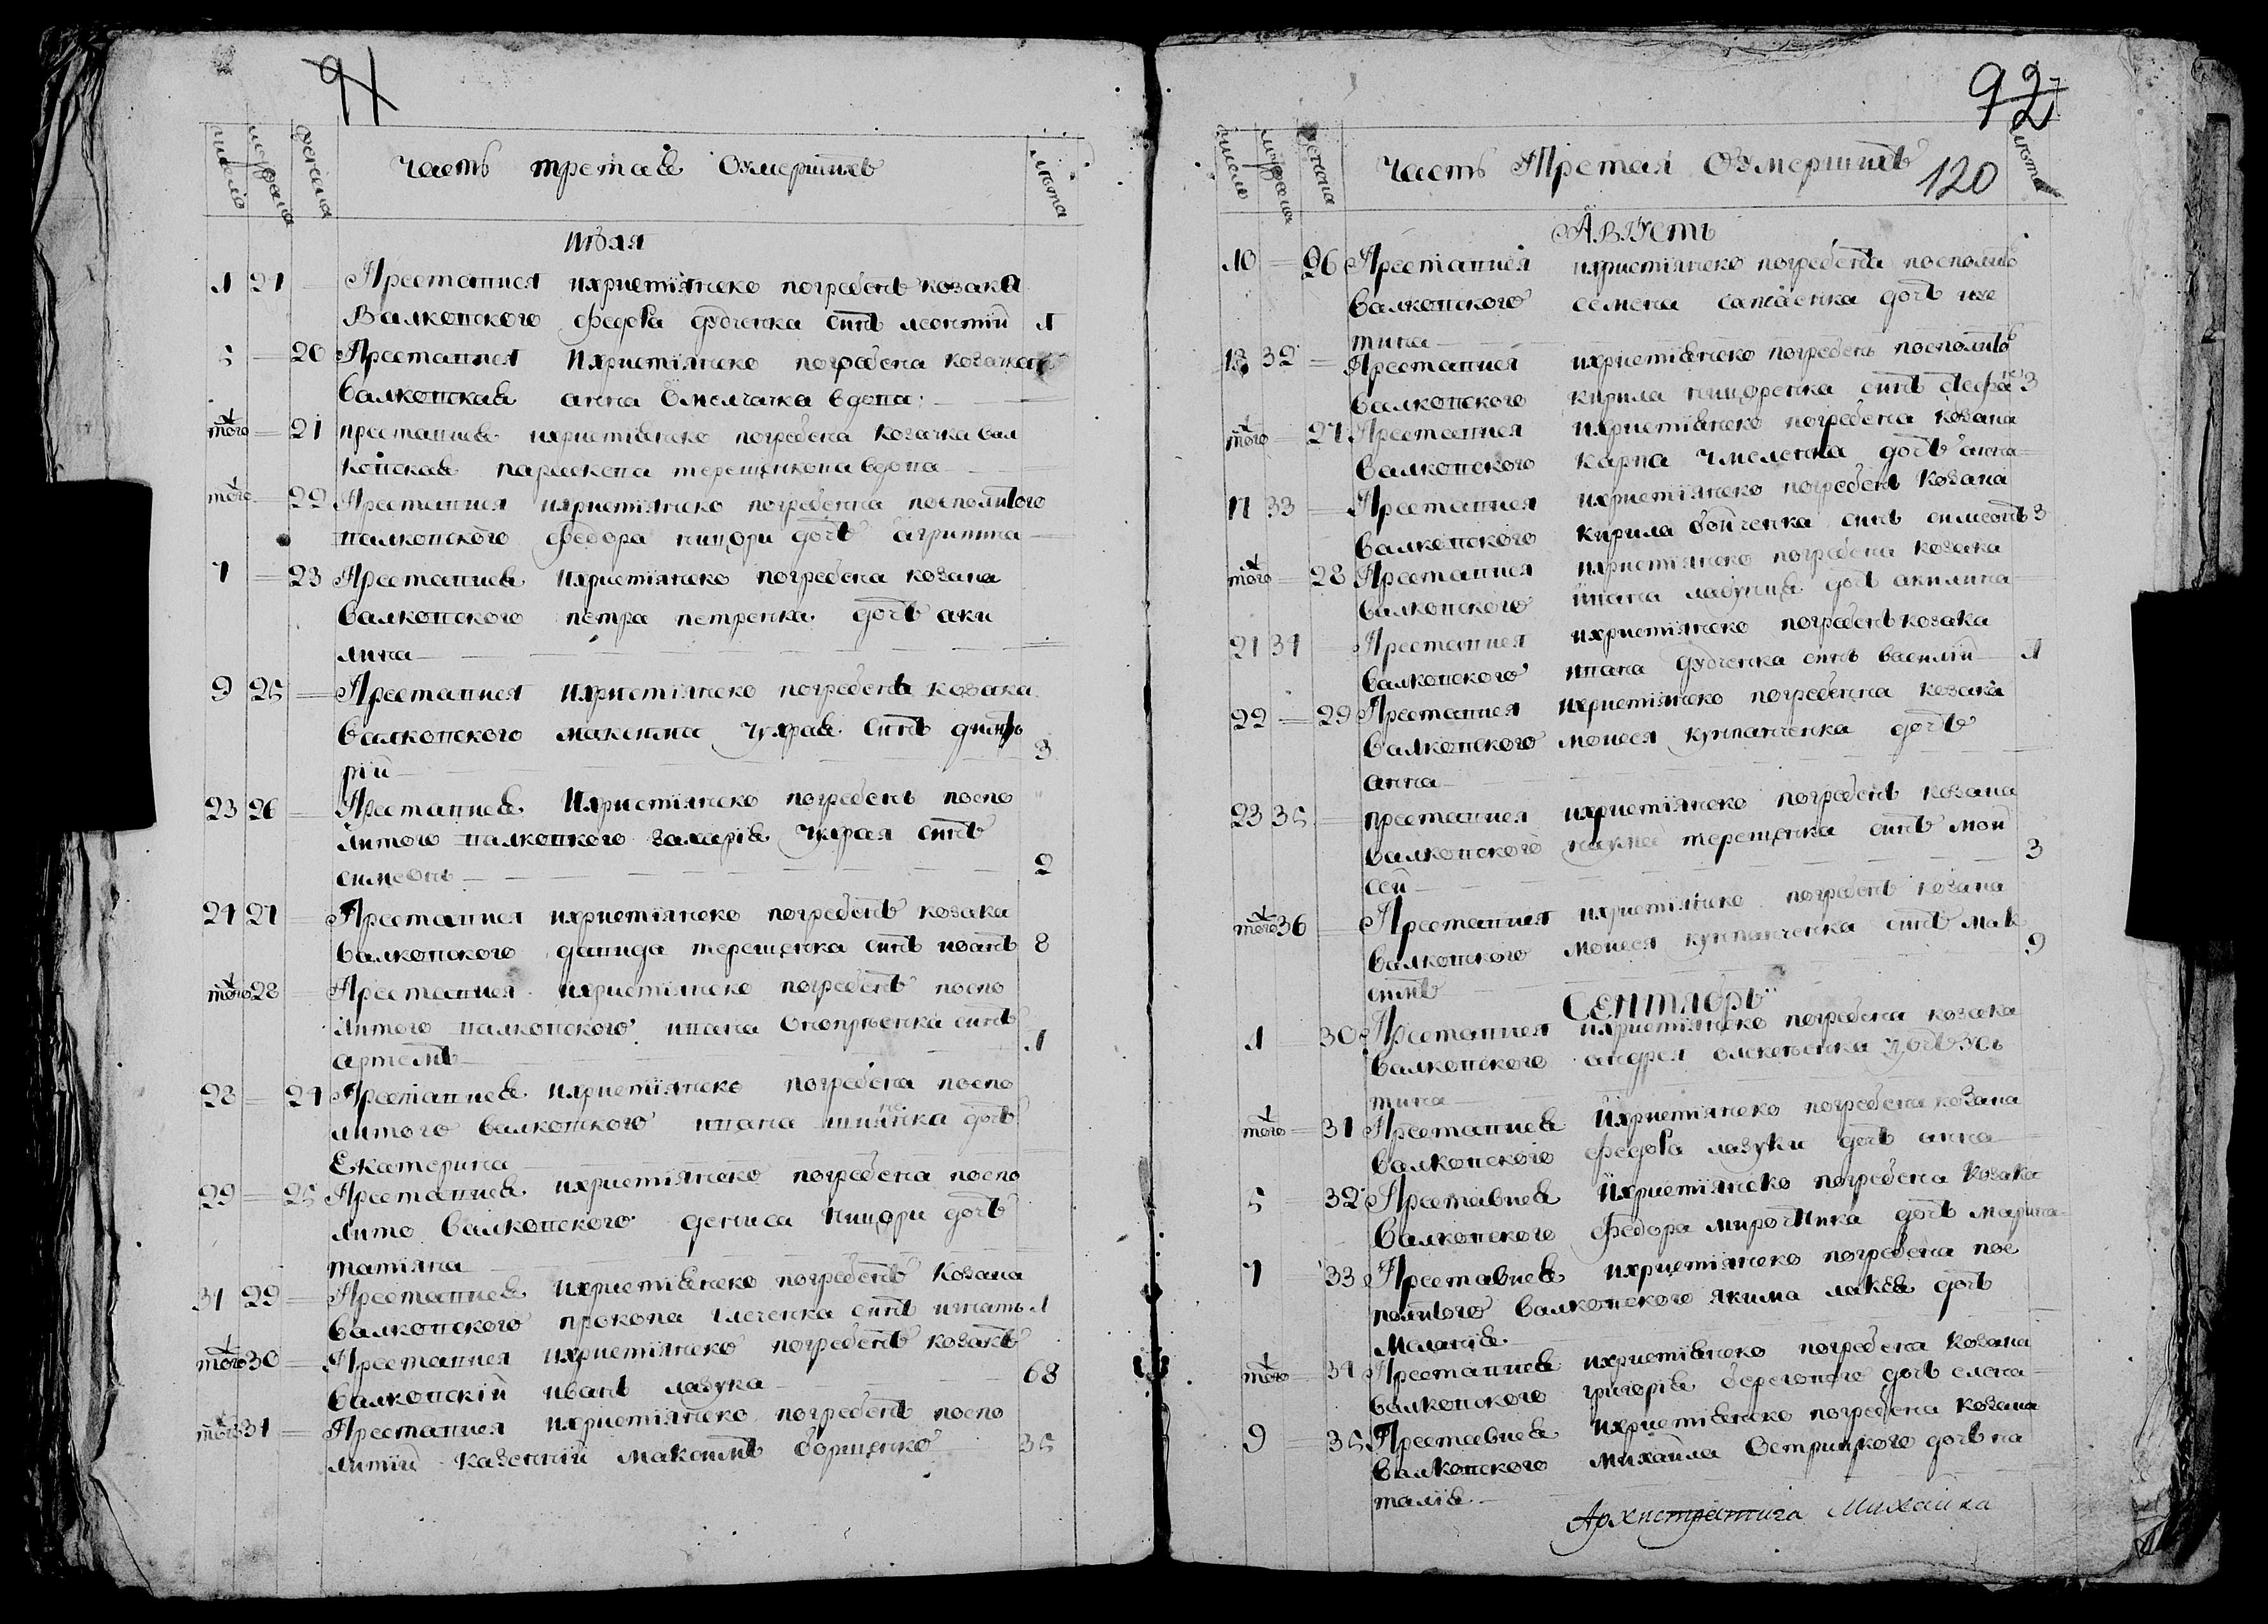 91
числа мужеска женска часть третая Оумершихъ лѣта
Июля
4 24 Преставися ихристіянско погребенъ козака
Валковского федора дудченка синъ леонтий 4
5 20 Преставися Ихристіянско погребена козачка
валковская анна Омелчачка вдова
того 21 преставися ихристіянско погребена козачка вал
ковская параскева терещенкова вдова
того 22 Преставися ихристіянско погребенна посполитого
валковского федора пищори дочъ агрипина
7 23 Преставися ихристіянско погребена козака
валковского петра петренка дочъ аки
лина
9 25 Преставися ихристіянско погребенъ козака
валковского максима чухрая синъ дими
рій 3
23 26 Преставися Ихристіянско погребенъ поспо
литого валковского захарія чухрая синъ
симеонъ 2
24 27 Преставися ихристіянско погребенъ козака
валковского давида терещенка синъ иоанъ 8
того 28 Преставися ихристіянско погребенъ поспо
литого валковского ивана Оноприенка синъ
артемъ 4
28 24 Преставися ихристіянско погребена поспо
литого валковского ивана дочъ
Екатерина
29 25 Преставися ихристіянско погребена поспо
лито валковского дениса пищори дочъ
татіяна
31 29 Преставися ихристіянско погребенъ козака
валковского прокопа синъ игнатъ 4
того 30 Преставися ихристіянско погребенъ козакъ
валковскій иванъ лазука 68
того 31 Преставися ихристіянско погребенъ поспо
литий казенний максимъ борщенко 35
92
числа мужеска женска часть Третая Оумершихъ 120 лѣта
Августъ
10 26 Преставися ихристіянско погребена посполито
валковского семена дочъ хри
тина
13 32 Преставися ихристіянско погребенъ посполито
валковского кирила пищоренка синъ стефанъ 3
того 27 Преставися ихристіянско погребена козака
валковского карпа дочъ анна
17 33 Преставися ихристіянско погребенъ козака
валковского кирила бойченка синъ симеонъ 3
того 28 Преставися ихристіянско погребена козака
валковского ивана дочъ акилина
21 34 Преставися ихристіянско погребенъ козака
валковского ивана дудченка синъ василій 4
22 29 Преставися ихристіянско погребенна козака
валковского моисея купianченка дочъ
анна
23 35 преставися ихристіянско погребенъ козака
валковского наума терещенка синъ мои
сей 3
того 36 Преставися ихристіянско погребенъ козака
валковского моисея синъ мак
симъ 9
Сентябрь
1 30 Преставися ихристіянско погребена козака
валковского андрея дочъ
тина
того 31 Преставися Ихристіянско погребена козака
валковского федора лазуки дочъ анна
5 32 Преставися Ихристіянско погребена козака
валковского федора мирочника дочъ марина
7 33 Преставися ихристіянско погребена пос
политого валковского якима дочъ
Меланія
того 34 Преставися ихристіянско погребена козака
валковского григорія берегового дочъ елена
9 35 Преставися ихристіянско погребена козака
валковского михайла Острицкого дочъ на
талія
Архистратига Михаила